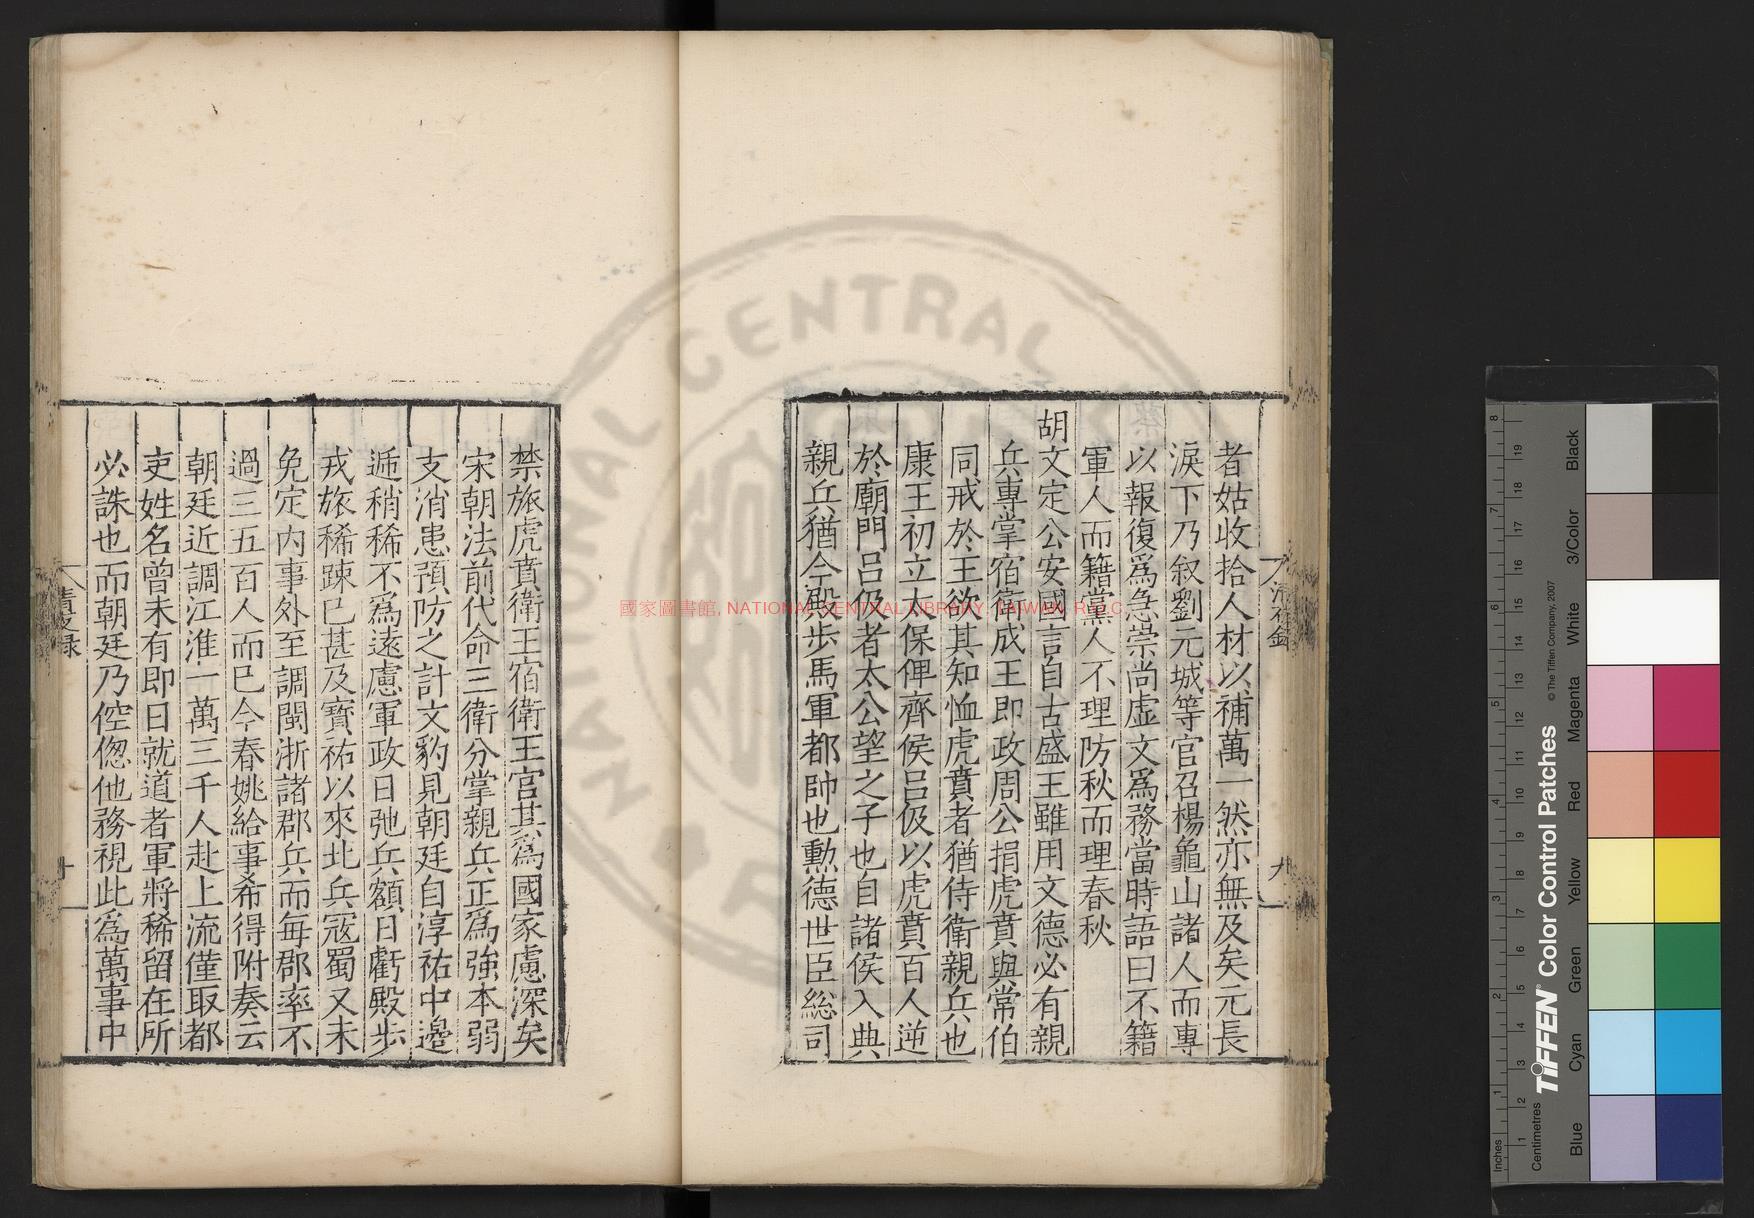 者姑收拾人材以補萬一然亦無及矣元長
淚下乃叙劉元城等官召楊龜山諸人而專
以報復爲急崇尚虛文爲務當時語曰不籍
軍人而籍黨人不理防秋而理春秋
胡文定公安國言自古盛王雖用文德必有親
兵專掌宿衛成王即政周公捐虎賁與常伯
同戒於王欲其知恤虎賁者猶侍衛親兵也
康王初立太保俾齊侯呂伋以虎賁百人逆
於廟門呂伋者太公望之子也自諸侯入典
親兵猶今殿步馬軍都帥也勲德世臣総司
九
禁旅虎賁衛王宿衛王宮其爲國家慮深矣
宋朝法前代命三衛分掌親兵正爲強本弱
支消患預防之計文豹見朝廷自淳祐中邊
遞稍稀不爲遠慮軍政日弛兵額日虧殿步
戎旅稀踈已甚及寳祐以來北兵冦蜀又未
免定内事外至調閩浙諸郡兵而毎郡率不
過三五百人而已今春姚給事希得附奏云
朝廷近調江淮一萬三千人赴上流僅取都
吏姓名曾未有即日就道者軍將稀留在所
必誅也而朝廷乃倥偬他務視此爲萬事中
清夜録
十
國家圖書館, NATIONAL CENTRAL LIBRARY, TAIWAN, R.O.C.
NATIONAL CENTRAL L
Inches
Centimetres
TIFFEN® Color Control Patches
© The Tiffen Company, 2007
Blue
Cyan
Green
Yellow
Red
Magenta
White
3/Color
Black